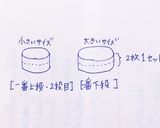 小さいサイズ
大きいサイズ
2枚1セット
[一番上段・2段目]
[番下段]